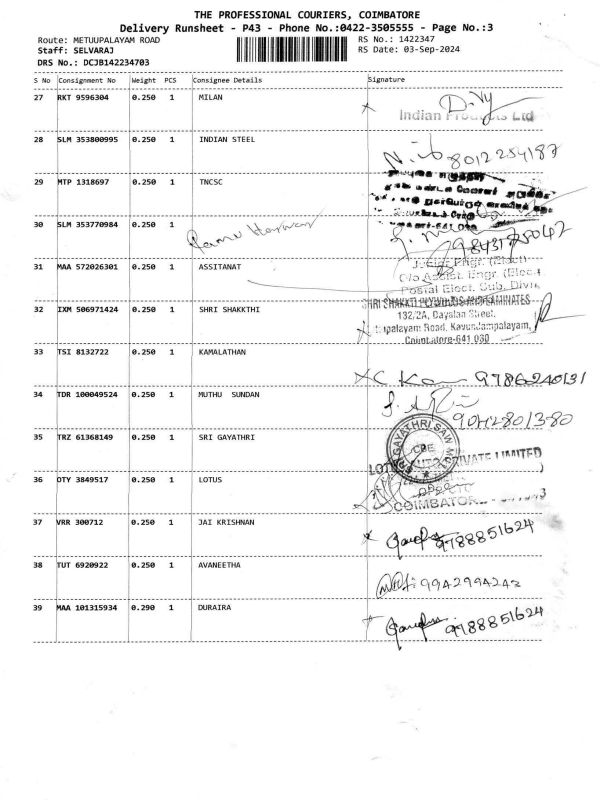 THE PROFESSIONAL COURIERS, COIMBATORE
Delivery Runsheet - P43 - Phone No.:0422-3505555 - Page No.:3
Route: METUUPALAYAM ROAD
RS No.: 1422347
Staff: SELVARAJ
RS Date: 03-Sep-2024
DRS No.: DCJB142234703
S No Consignment No Weight PCS Consignee Details Signature
27 RKT 9596304 0.250 1 MILAN
Indian Products Ltd
28 SLM 353800995 0.250 1 INDIAN STEEL
8012254187
29 MTP 1318697 0.250 1 TNCSC
30 SLM 353770984 0.250 1
9843175042
31 MAA 572026301 0.250 1 ASSITANAT
Junior Engr. (Elect)
O/o Assist. Engr. (Elect.
Postal Elect. Sub. Divn
32 IXM 506971424 0.250 1 SHRI SHAKKTHI
SHRI SHAKKTI PLYWOODS AND LAMINATES
132/2A, Dayalan Street,
palayam Road, Kavundampalayam,
Coimbatore-641 030
33 TSI 8132722 0.250 1 KAMALATHAN
9786240131
34 TDR 100049524 0.250 1 MUTHU SUNDAN
9042801380
35 TRZ 61368149 0.250 1 SRI GAYATHRI
SRI GAYATHRI SAW MILL
CBE
PRIVATE LIMITED
36 OTY 3849517 0.250 1 LOTUS
COIMBATORE
37 VRR 300712 0.250 1 JAI KRISHNAN
9788851624
38 TUT 6920922 0.250 1 AVANEETHA
9942994242
39 MAA 101315934 0.290 1 DURAIRA
9788851624